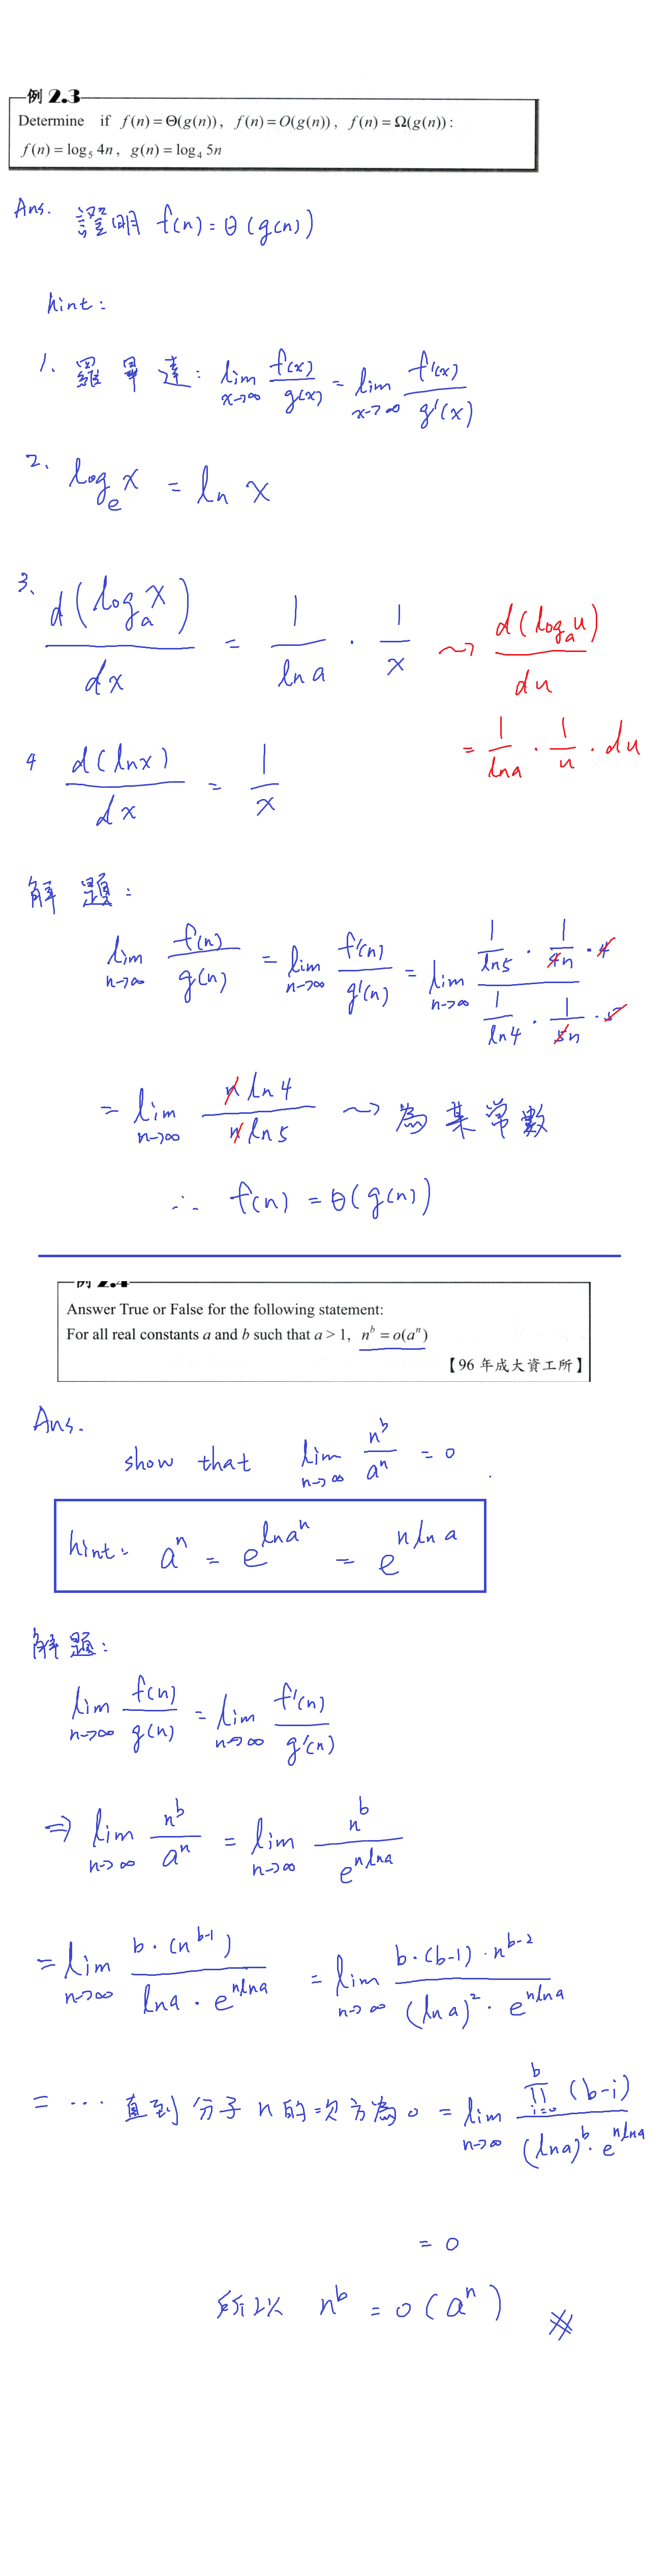 例 2.3
Determine if f(n) = Θ(g(n)), f(n) = O(g(n)), f(n) = Ω(g(n)) :
f(n) = log₅ 4n, g(n) = log₄ 5n
Ans. 證明 f(n) = θ(g(n))
hint:
1. 羅畢達: lim_{x→∞} f(x)/g(x) = lim_{x→∞} f'(x)/g'(x)
2. log_e x = ln x
3. d(log_a x)/dx = 1/ln a · 1/x ~> d(log_a u)/du
= 1/lna · 1/u · du
4 d(lnx)/dx = 1/x
解題:
lim_{n→∞} f(n)/g(n) = lim_{n→∞} f'(n)/g'(n) = lim_{n→∞} (1/ln5 · 1/4n · 4)/(1/ln4 · 1/5n · 5)
= lim_{n→∞} n ln4/n ln5 ~> 為某常數
∴ f(n) = θ(g(n))
例 2.4
Answer True or False for the following statement:
For all real constants a and b such that a > 1, n^b = o(a^n)
【96 年成大資工所】
Ans.
show that lim_{n→∞} n^b/a^n = 0.
hint: a^n = e^{lna^n} = e^{n ln a}
解題:
lim_{n→∞} f(n)/g(n) = lim_{n→∞} f'(n)/g'(n)
⇒ lim_{n→∞} n^b/a^n = lim_{n→∞} n^b/e^{nlna}
= lim_{n→∞} b·(n^{b-1})/(lna · e^{nlna}) = lim_{n→∞} b·(b-1)·n^{b-2}/((lna)²· e^{nlna})
= ⋯ 直到分子 n 的次方為 0 = lim_{n→∞} ∏_{i=0}^{b} (b-i)/((lna)^b · e^{nlna})
= 0
所以 n^b = o(a^n) #